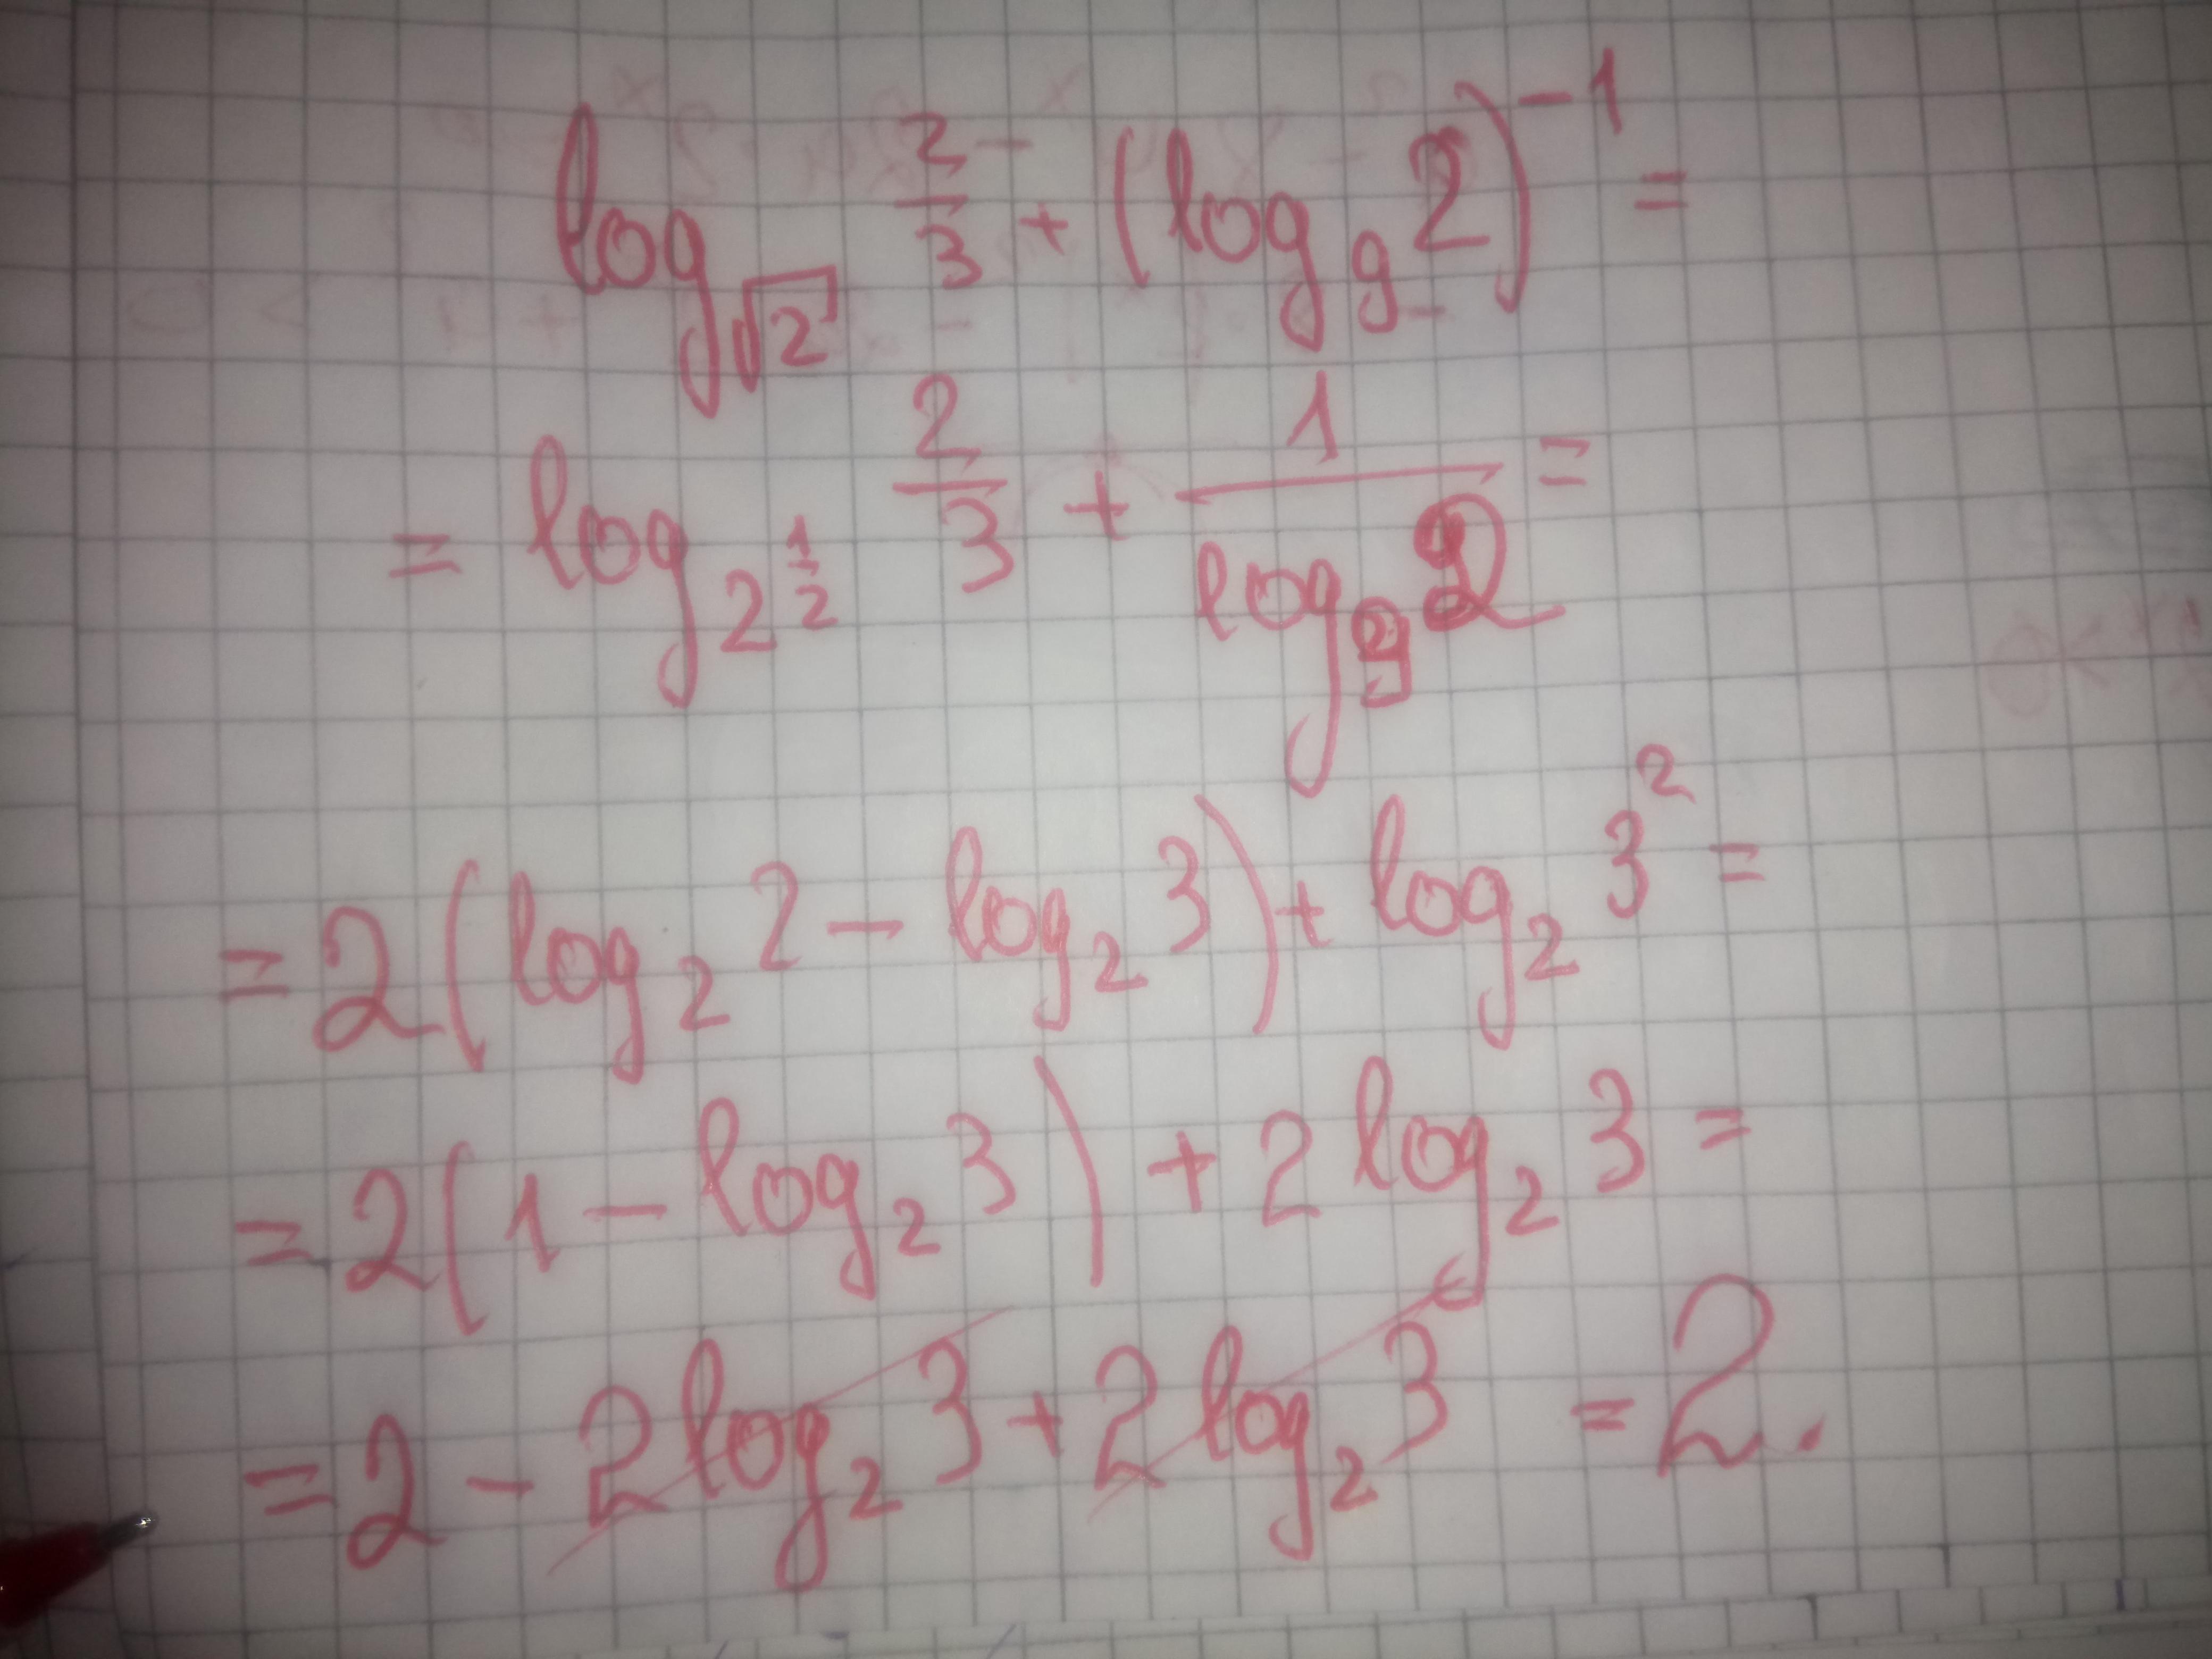 log_√2 2/3 + (log_9 2)^-1 =
= log_2^1/2 2/3 + 1/log_9 2 =
= 2(log_2 2 - log_2 3) + log_2 3^2 =
= 2(1 - log_2 3) + 2 log_2 3 =
= 2 - 2 log_2 3 + 2 log_2 3 = 2.